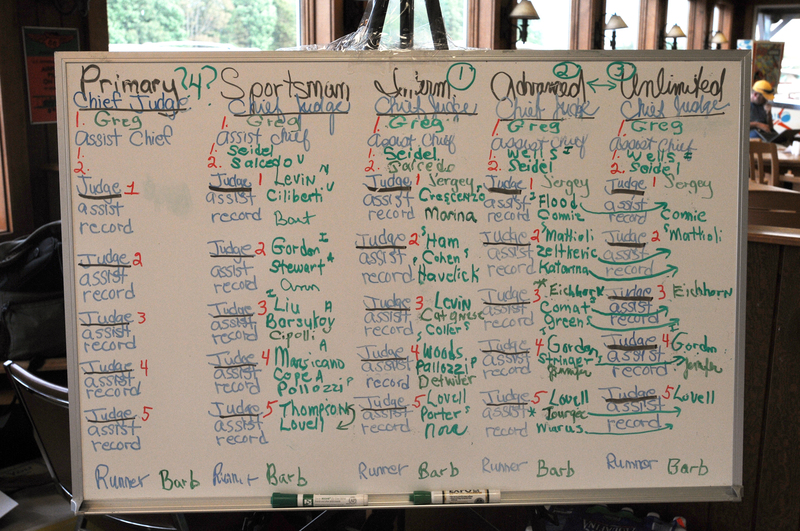 Primary ?4?
Chief Judge
1. Greg
Assist Chief
1.
2.
Judge 1
assist
record
Judge 2
assist
record
Judge 3
assist
record
Judge 4
assist
record
Judge 5
assist
record
Runner Barb
Sportsman
Chief Judge
1. Greg
Assist Chief
1. Seidel
2. Salcedo U
Judge 1 Levin U
assist Ciliberti U
record Bart
Judge 2 Gordon I
assist Stewart A
record Ann
Judge 3 Liu A
assist Borsukoy
record Cipolli A
Judge 4 Marsicano
assist Cope A
record Pollozzi P
Judge 5 Thompson S
assist Lovell
record
Runner Barb
Interm. 1
Chief Judge
1. Greg
Assist Chief
1. Seidel
2. Salcedo
Judge 1 Sergey
assist Crescenzo
record Marina
Judge 2 S Ham
assist Cohen S
record Havelick
Judge 3 Levin
assist
record Coller S
Judge 4 Woods
assist Pallozzi P
record Detwiler
Judge 5 Lovell
assist Porter S
record Nova
Runner Barb
Advanced 2
Chief Judge
1. Greg
Assist Chief
1. Wells I
2. Seidel
Judge 1 Sergey
assist Flood
record Connie
Judge 2 S Mattioli
assist Zeltkevic
record Katarina
Judge 3 Eichhorn
assist Comat S
record Green S
Judge 4 Gordon I
assist Stringer
record Jennifer
Judge 5 Lovell
assist * Tourgee
record Wiarus
Runner Barb
3 Unlimited
Chief Judge
1. Greg
Assist Chief
1. Wells I
2. Seidel
Judge 1 Sergey
assist
record Connie
Judge 2 S Mattioli
assist
record
Judge 3 Eichhorn
assist
record
Judge 4 Gordon
assist
record Jenifer
Judge 5 Lovell
assist
record
Runner Barb